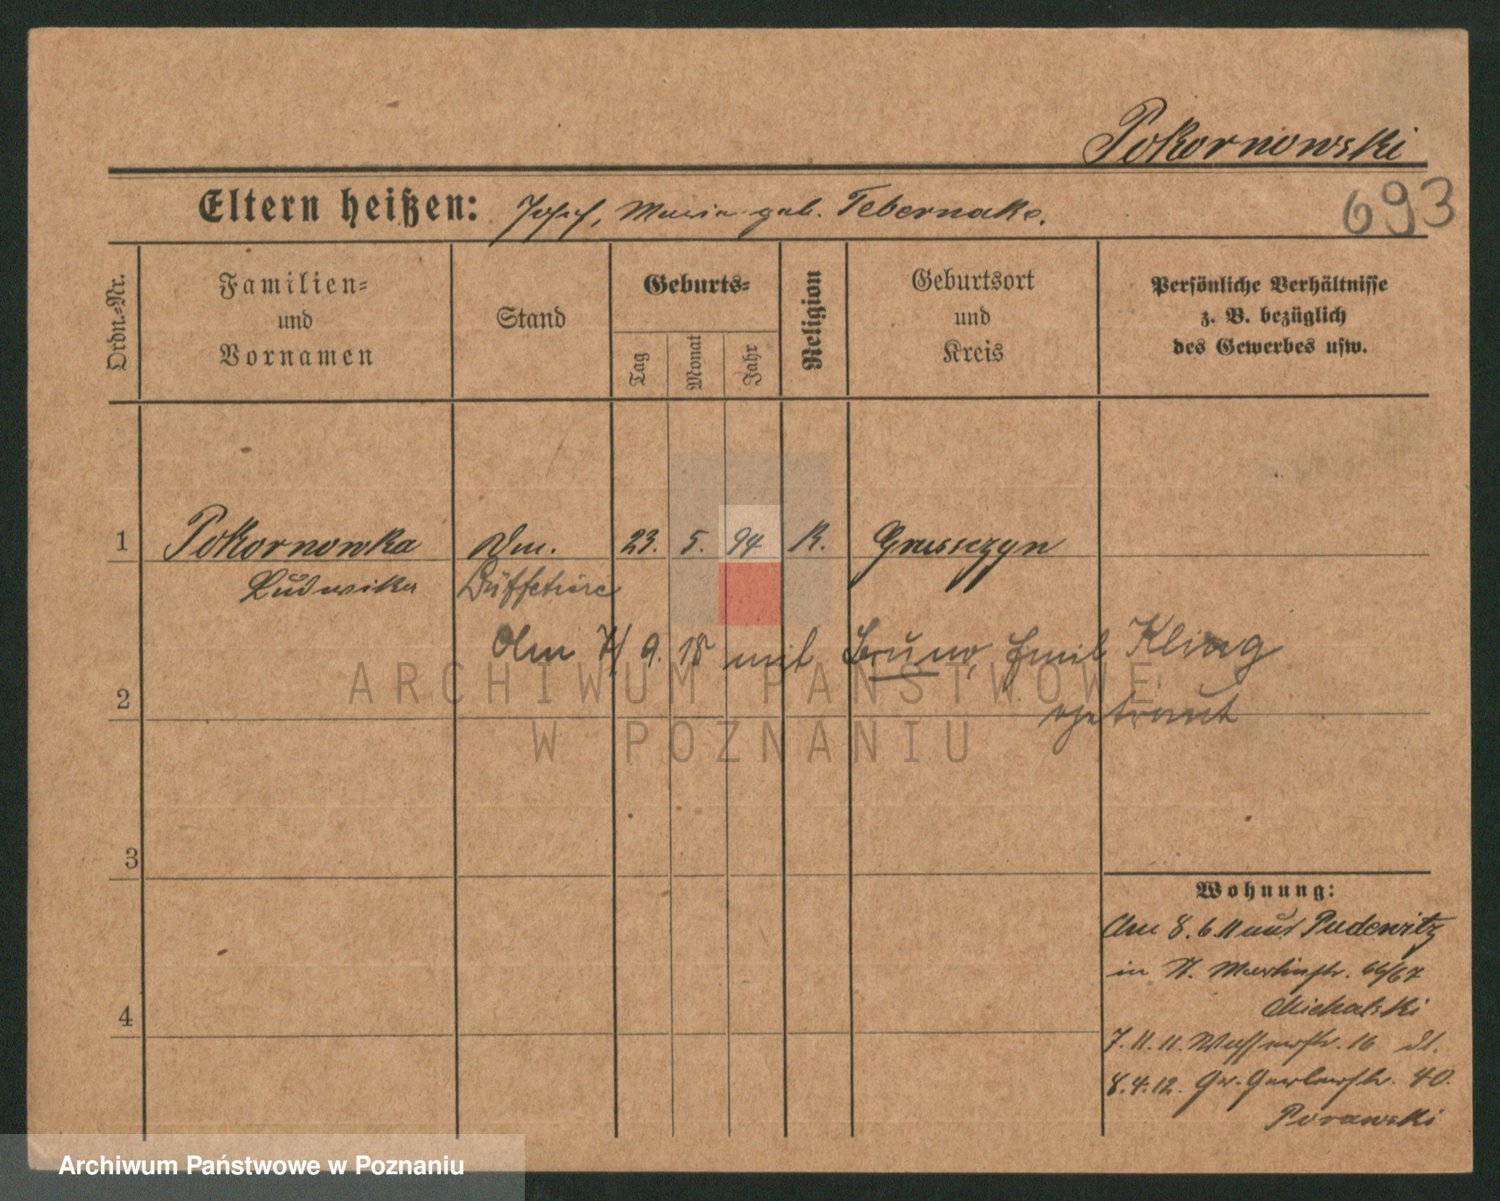 Pokornowski
693
Eltern heißen: Josef, Maria geb. Tebernako.
Ordn.-Nr.
Familien-
und
Vornamen
Stand
Geburts-
Tag
Monat
Jahr
Religion
Geburtsort
und
Kreis
Persönliche Verhältnisse
z. B. bezüglich
des Gewerbes usw.
1 Pokornowska 23. 5. 94 K. Gruszczyn
Ludwika Büffetiere
Am 7/9. 18 mit Bruno, Emil Kling
getraut
2
3
4
Wohnung:
Am 8. 6. 11 aus Pudewitz
in St. Martinstr. 66/67
Michalski
7. 11. 11. Wasserstr. 16
8. 4. 12. Gr. Gerberstr. 40.
Porawski
ARCHIWUM PAŃSTWOWE
W POZNANIU
Archiwum Państwowe w Poznaniu